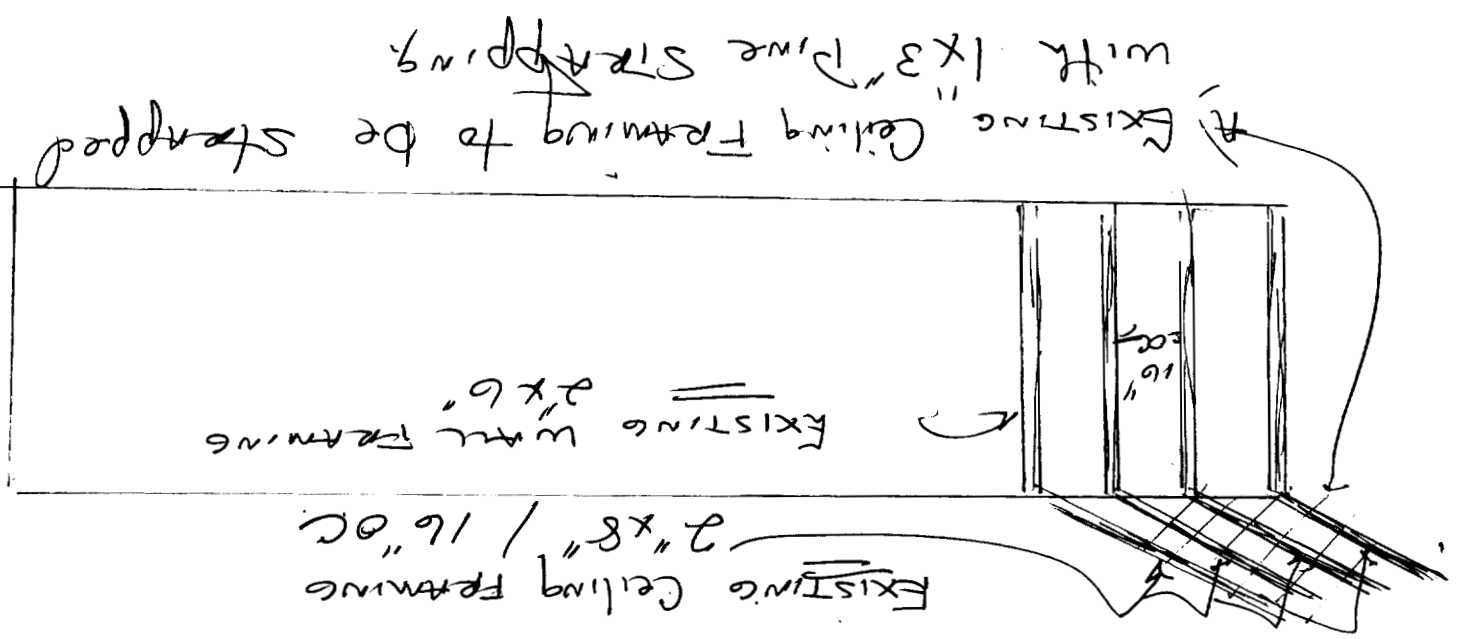 EXISTING Ceiling FRAMING
2"x8" / 16" OC
EXISTING WALL FRAMING
2"x6"
16"
OC
A) EXISTING Ceiling FRAMING to be STRAPPED
with 1"x3" Pine STRAPPING.